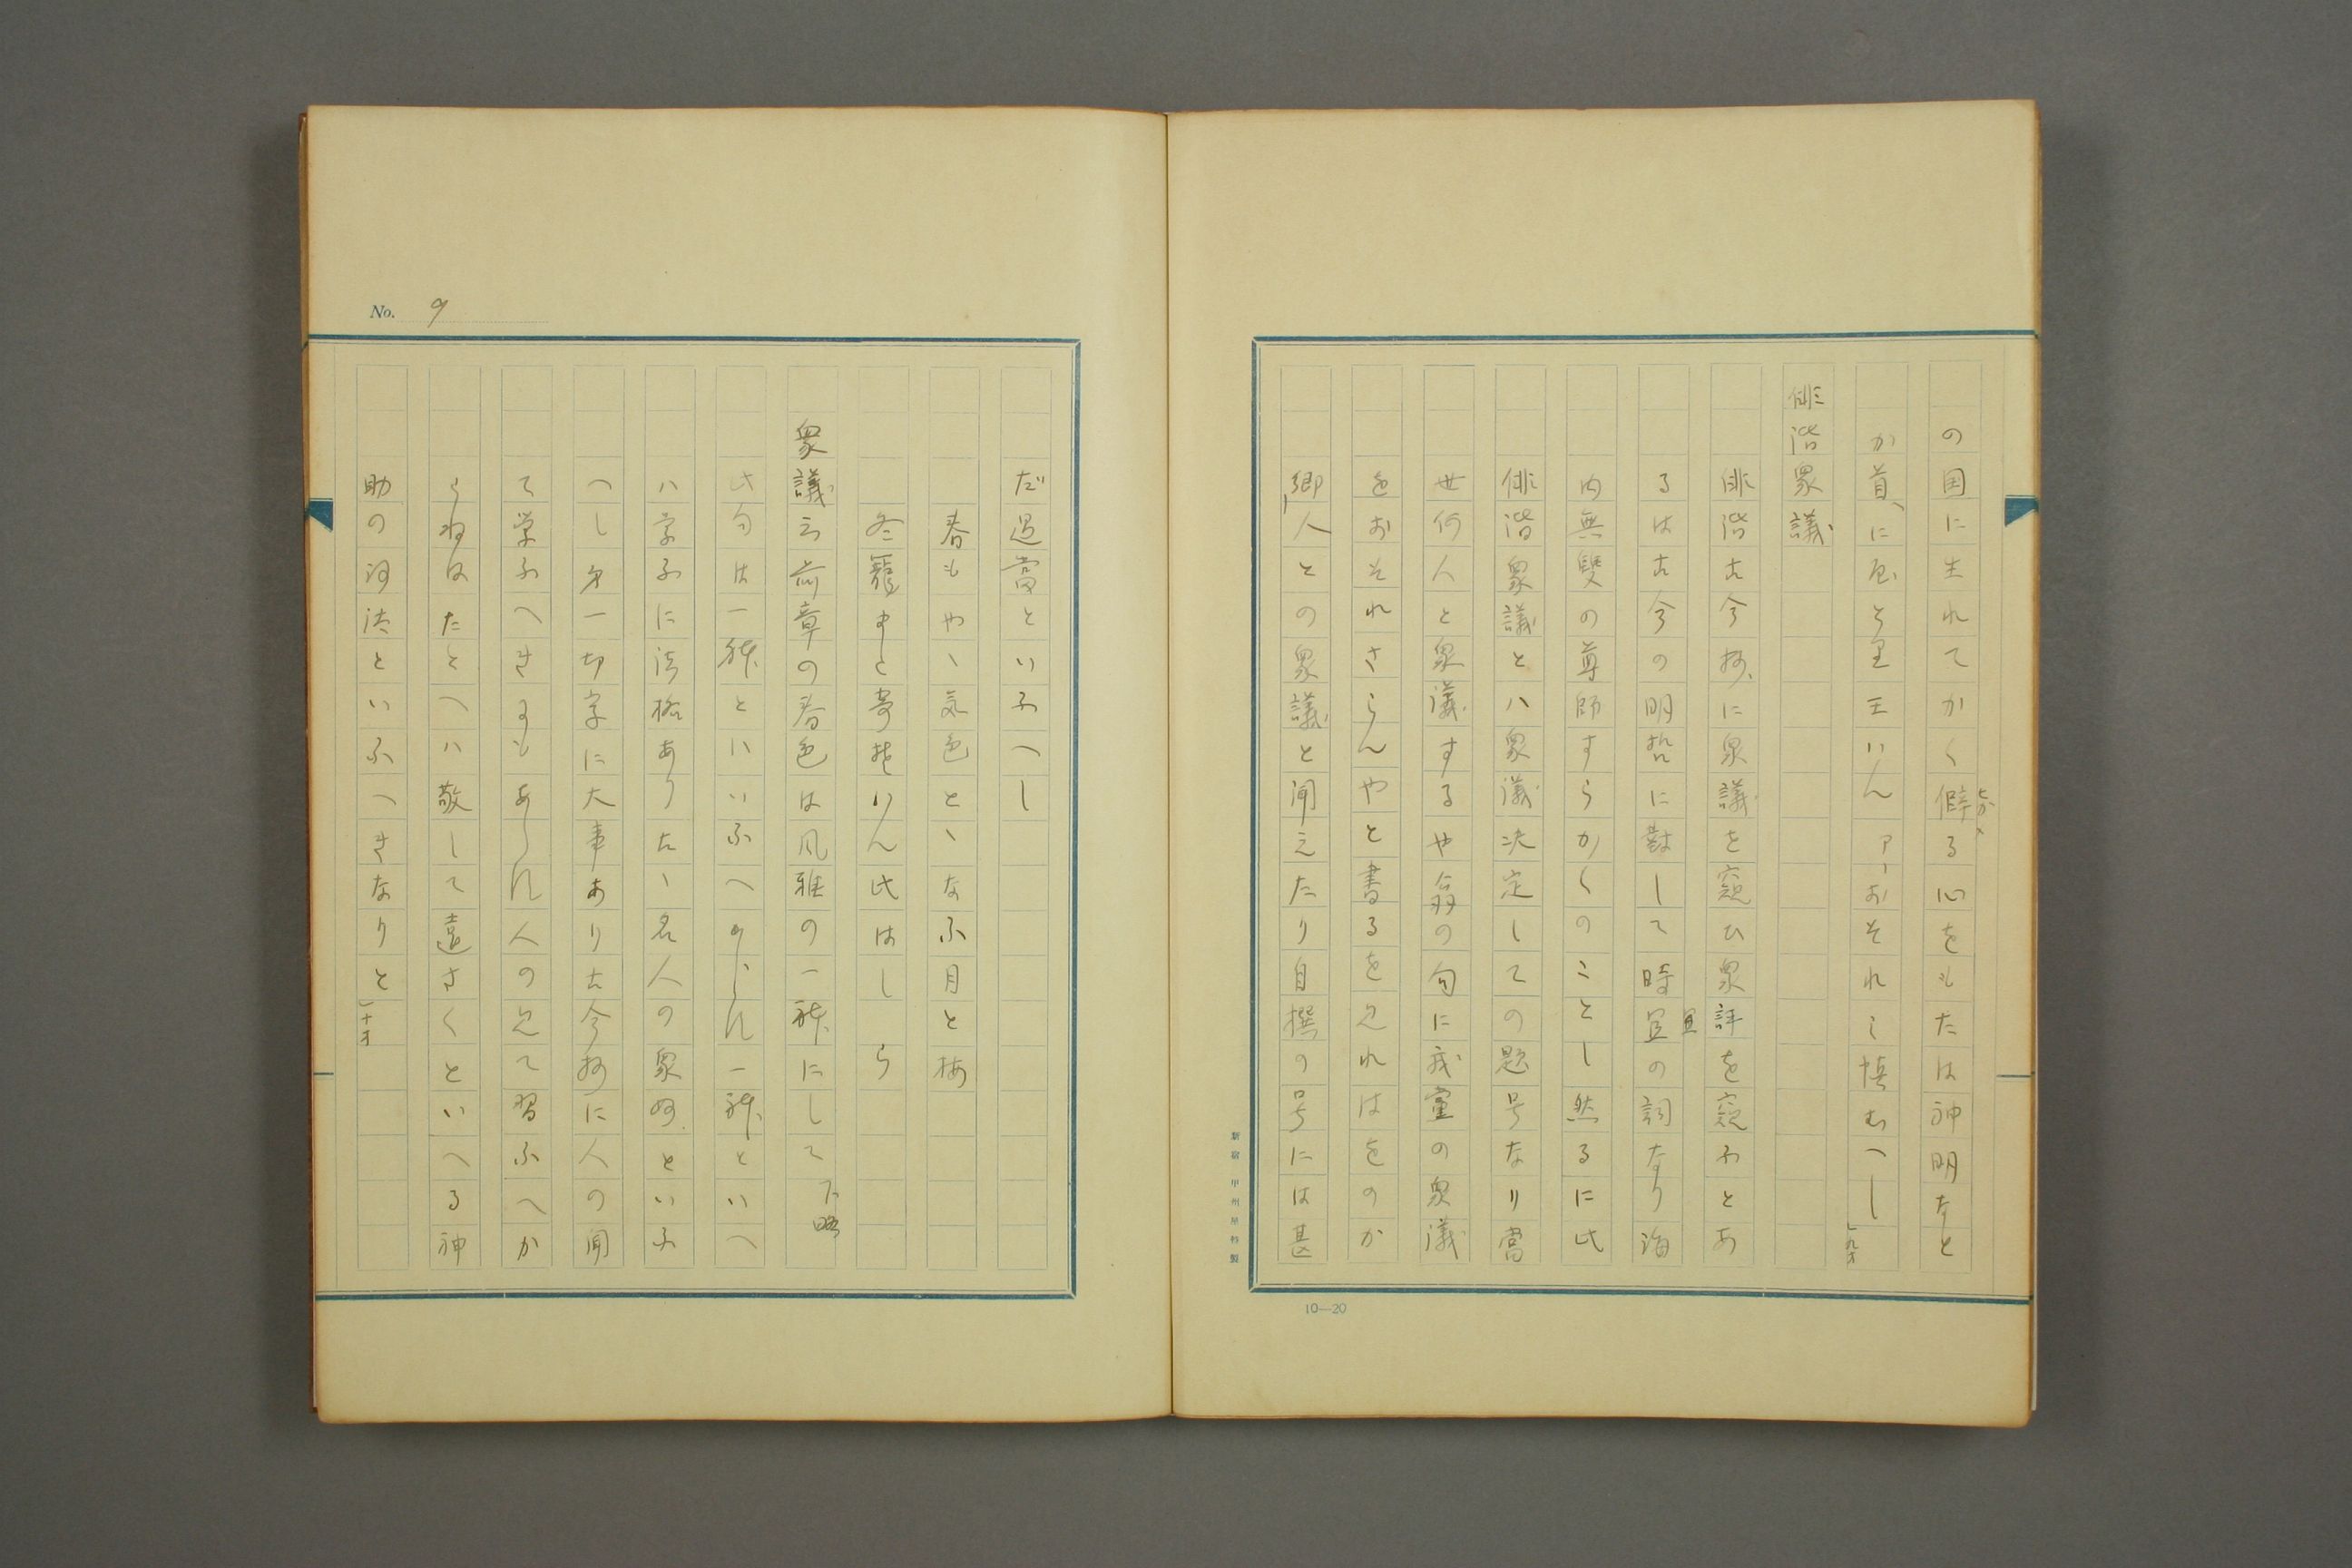 の国に生れてかく僻る心をもたは神明なと
か首に
おそれ慎むへし」九才
俳諧衆議
俳諧古今抄に衆議を窺ひ衆評を窺ふとあ
るは古今の明哲に対して時宜の詞なり海
内無雙の尊師すらかくのことし然るに此
俳諧衆議とハ衆議决定しての題号なり當
世何人と衆議するや翁の句に我黨の衆議
をおそれさらんやと書るを見れはをのか
郷人との衆議と聞えたり自撰の号には甚
新宿 甲州屋特製
10—20
No. 9
だ過當といふへし
春もやゝ気色とゝなふ月と梅
冬籠りまた寄そはん此はしら
衆議云前章の春色は風雅の一躰にして 下略
此句は一躰といいふへからん一躰といへ
ハ学ふに法格あり古ゝ名人の衆妙といふ
へし分一切字に大事あり古今抄に人の聞
て学ふへきすもあらん人の見て習ふへか
らねはたとへハ敬して遠さくといへる神
助の汐法といふへきなりと」十才